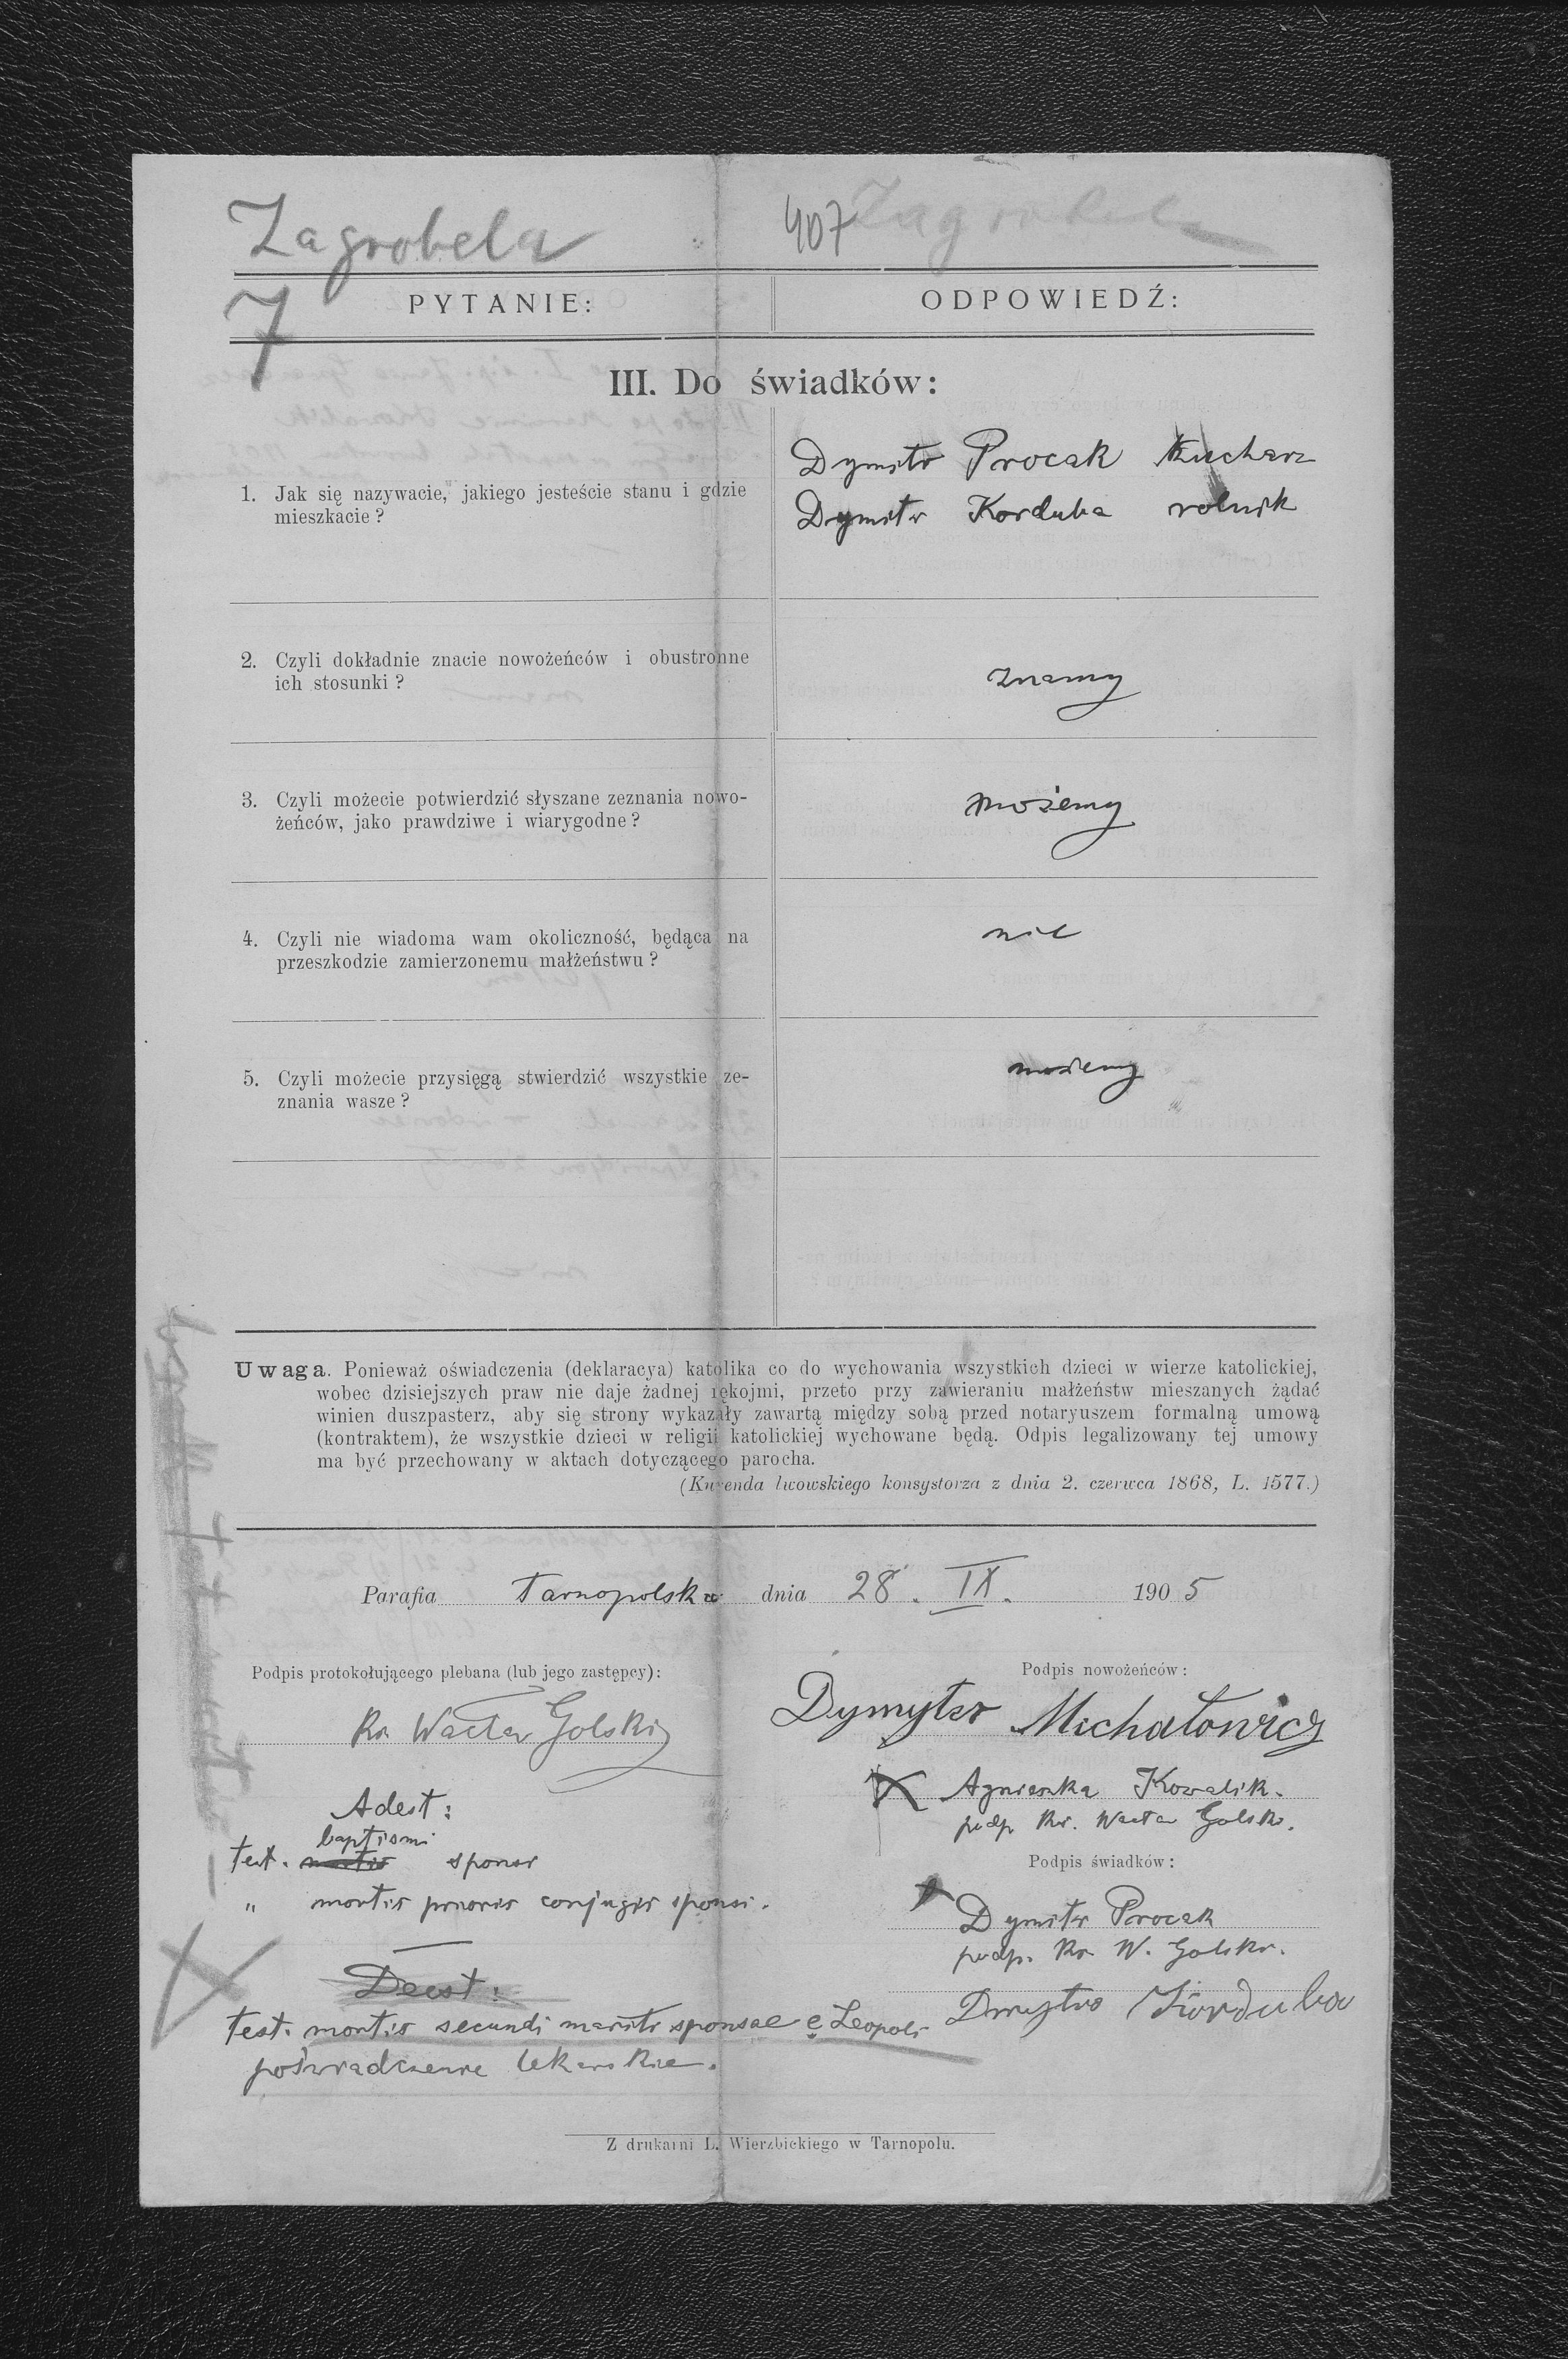 Zagrobela
407 Zagrobela
7
PYTANIE: ODPOWIEDŹ:
III. Do świadków:
1. Jak się nazywacie, jakiego jesteście stanu i gdzie
mieszkacie?
Dymitr Procak kucharz
Dymitr Korduba rolnik
2. Czyli dokładnie znacie nowożeńców i obustronne
ich stosunki?
znamy
3. Czyli możecie potwierdzić słyszane zeznania nowo-
żeńców, jako prawdziwe i wiarygodne?
możemy
4. Czyli nie wiadoma wam okoliczność, będąca na
przeszkodzie zamierzonemu małżeństwu?
nie
5. Czyli możecie przysięgą stwierdzić wszystkie ze-
znania wasze?
możemy
Uwaga. Ponieważ oświadczenia (deklaracya) katolika co do wychowania wszystkich dzieci w wierze katolickiej,
wobec dzisiejszych praw nie daje żadnej rękojmi, przeto przy zawieraniu małżeństw mieszanych żądać
winien duszpasterz, aby się strony wykazały zawartą między sobą przed notaryuszem formalną umową
(kontraktem), że wszystkie dzieci w religii katolickiej wychowane będą. Odpis legalizowany tej umowy
ma być przechowany w aktach dotyczącego parocha.
(Kurenda lwowskiego konsystorza z dnia 2. czerwca 1868, L. 1577.)
Parafia Tarnopolska dnia 28. IX. 1905
Podpis protokołującego plebana (lub jego zastępcy):
Ks. Wacław Golski
Podpis nowożeńców:
Dymyter Michałowicz
X Agnieszka Kowalik.
podp. Ks. Wacław Golski.
Podpis świadków:
Dymitr Procak
podp. Ks. W. Golski.
Dmytro Korduba
Adest:
baptismi
test. mortis sponsi
" mortis prioris conjugis sponsi.
Deest:
test. mortis secundi mariti sponsae e Leopoli
poświadczenie lekarskie.
Z drukarni L. Wierzbickiego w Tarnopolu.